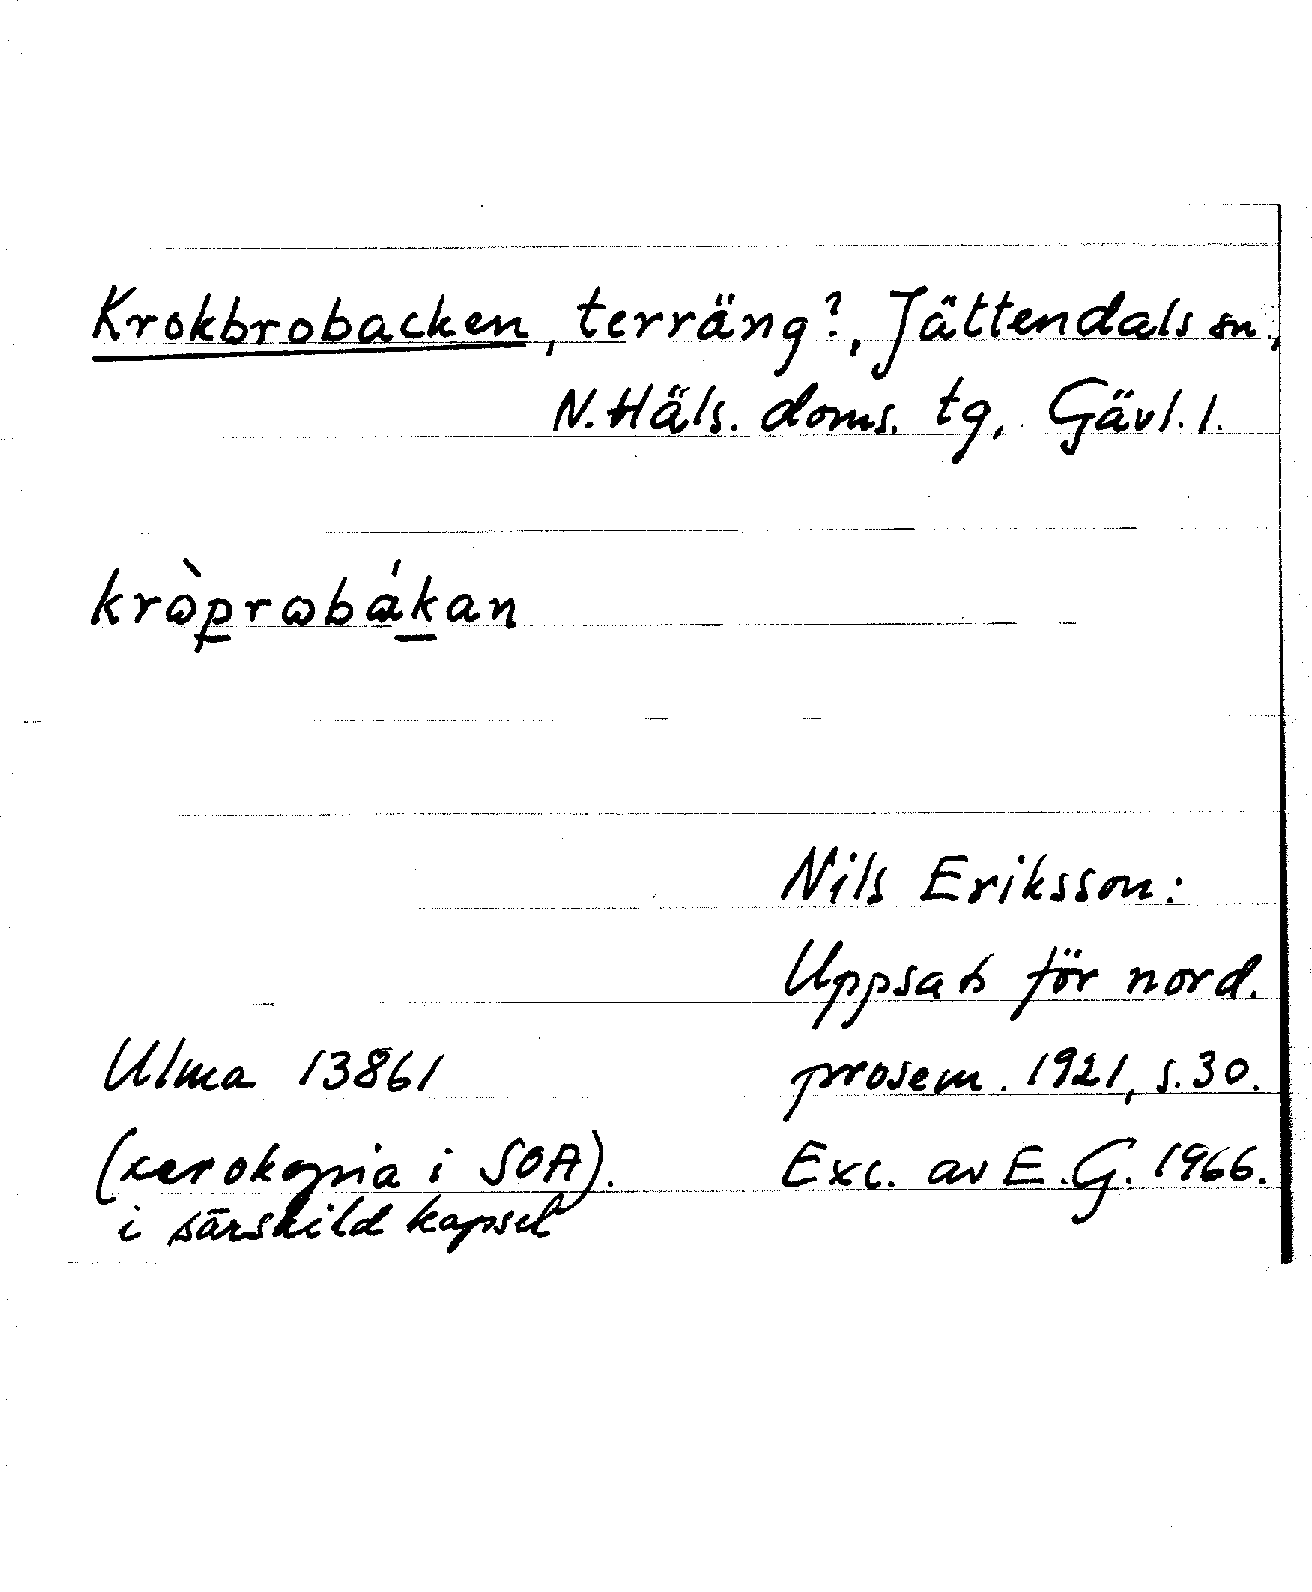 Krokbrobacken, terräng?, Jättendals sn,
N. Häls. doms. tg, Gävl. l.
krɷ̀p̲rɷbák̲an
Nils Eriksson:
Uppsats för nord.
Ulma 13861 prosem. 1921, s. 30.
(xerokopia i SOA). Exc. av E.G. 1966.
i särskild kapsel